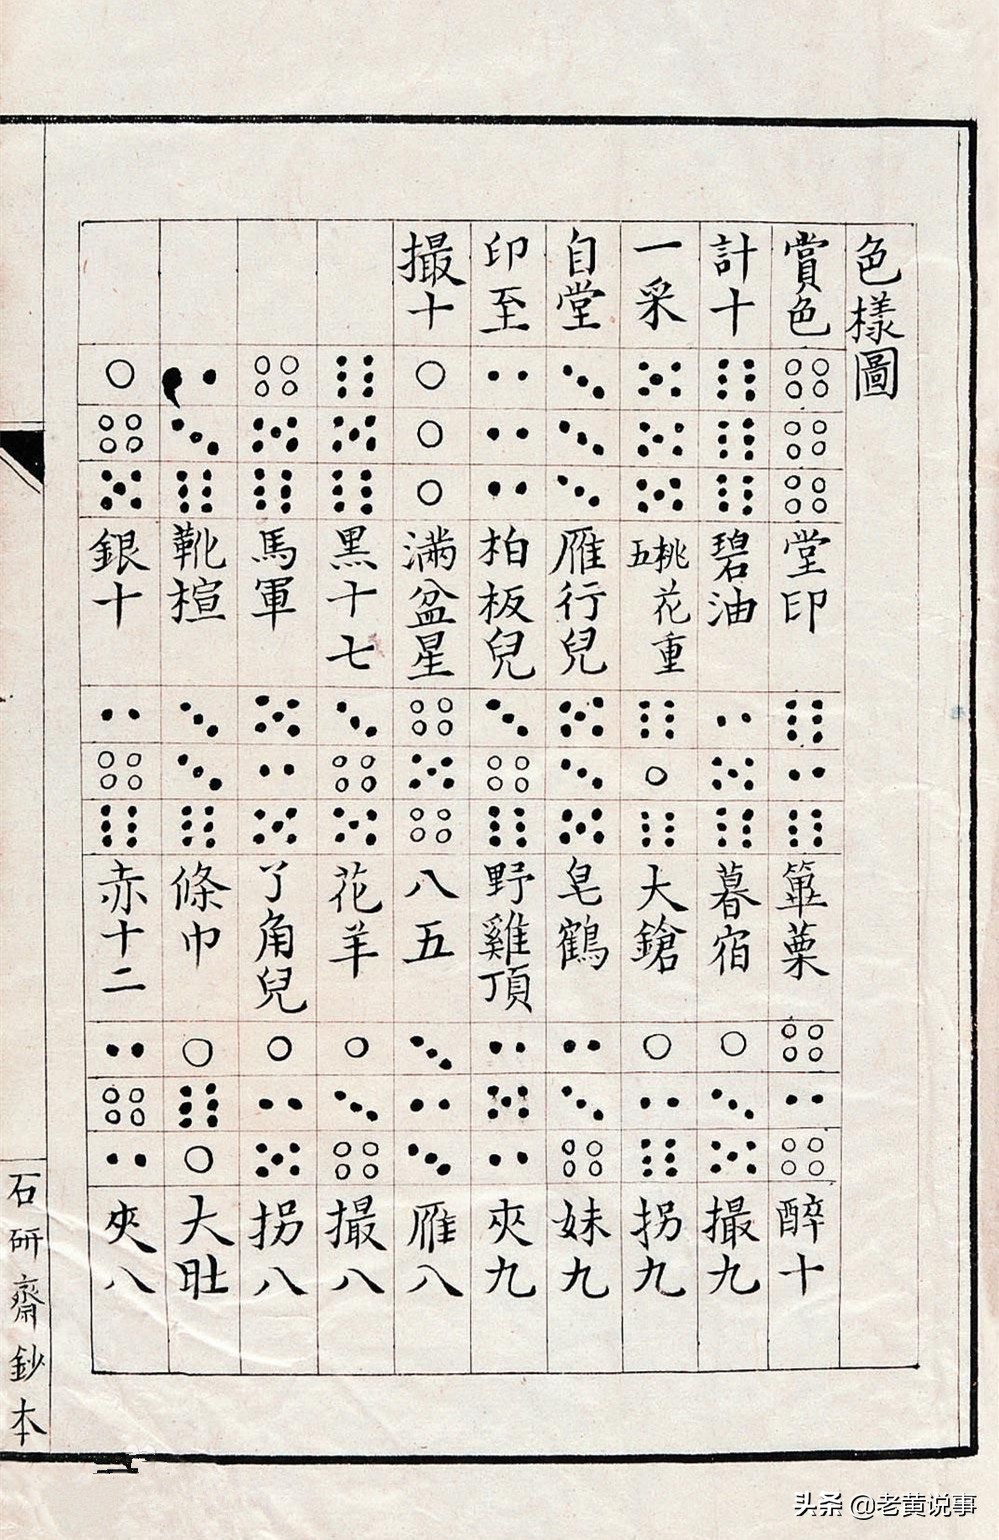 色樣圖
賞色
堂印
篳篥
醉十
計十
碧油
暮宿
撮九
一采
桃花重五
大鎗
拐九
自堂
雁行兒
皂鶴
妹九
印至
柏板兒
野雞頂
夾九
撮十
滿盆星
八五
雁八
黑十七
花羊
撮八
馬軍
丫角兒
拐八
靴楦
條巾
大肚
銀十
赤十二
夾八
石研齋鈔本
头条 @老黄说事